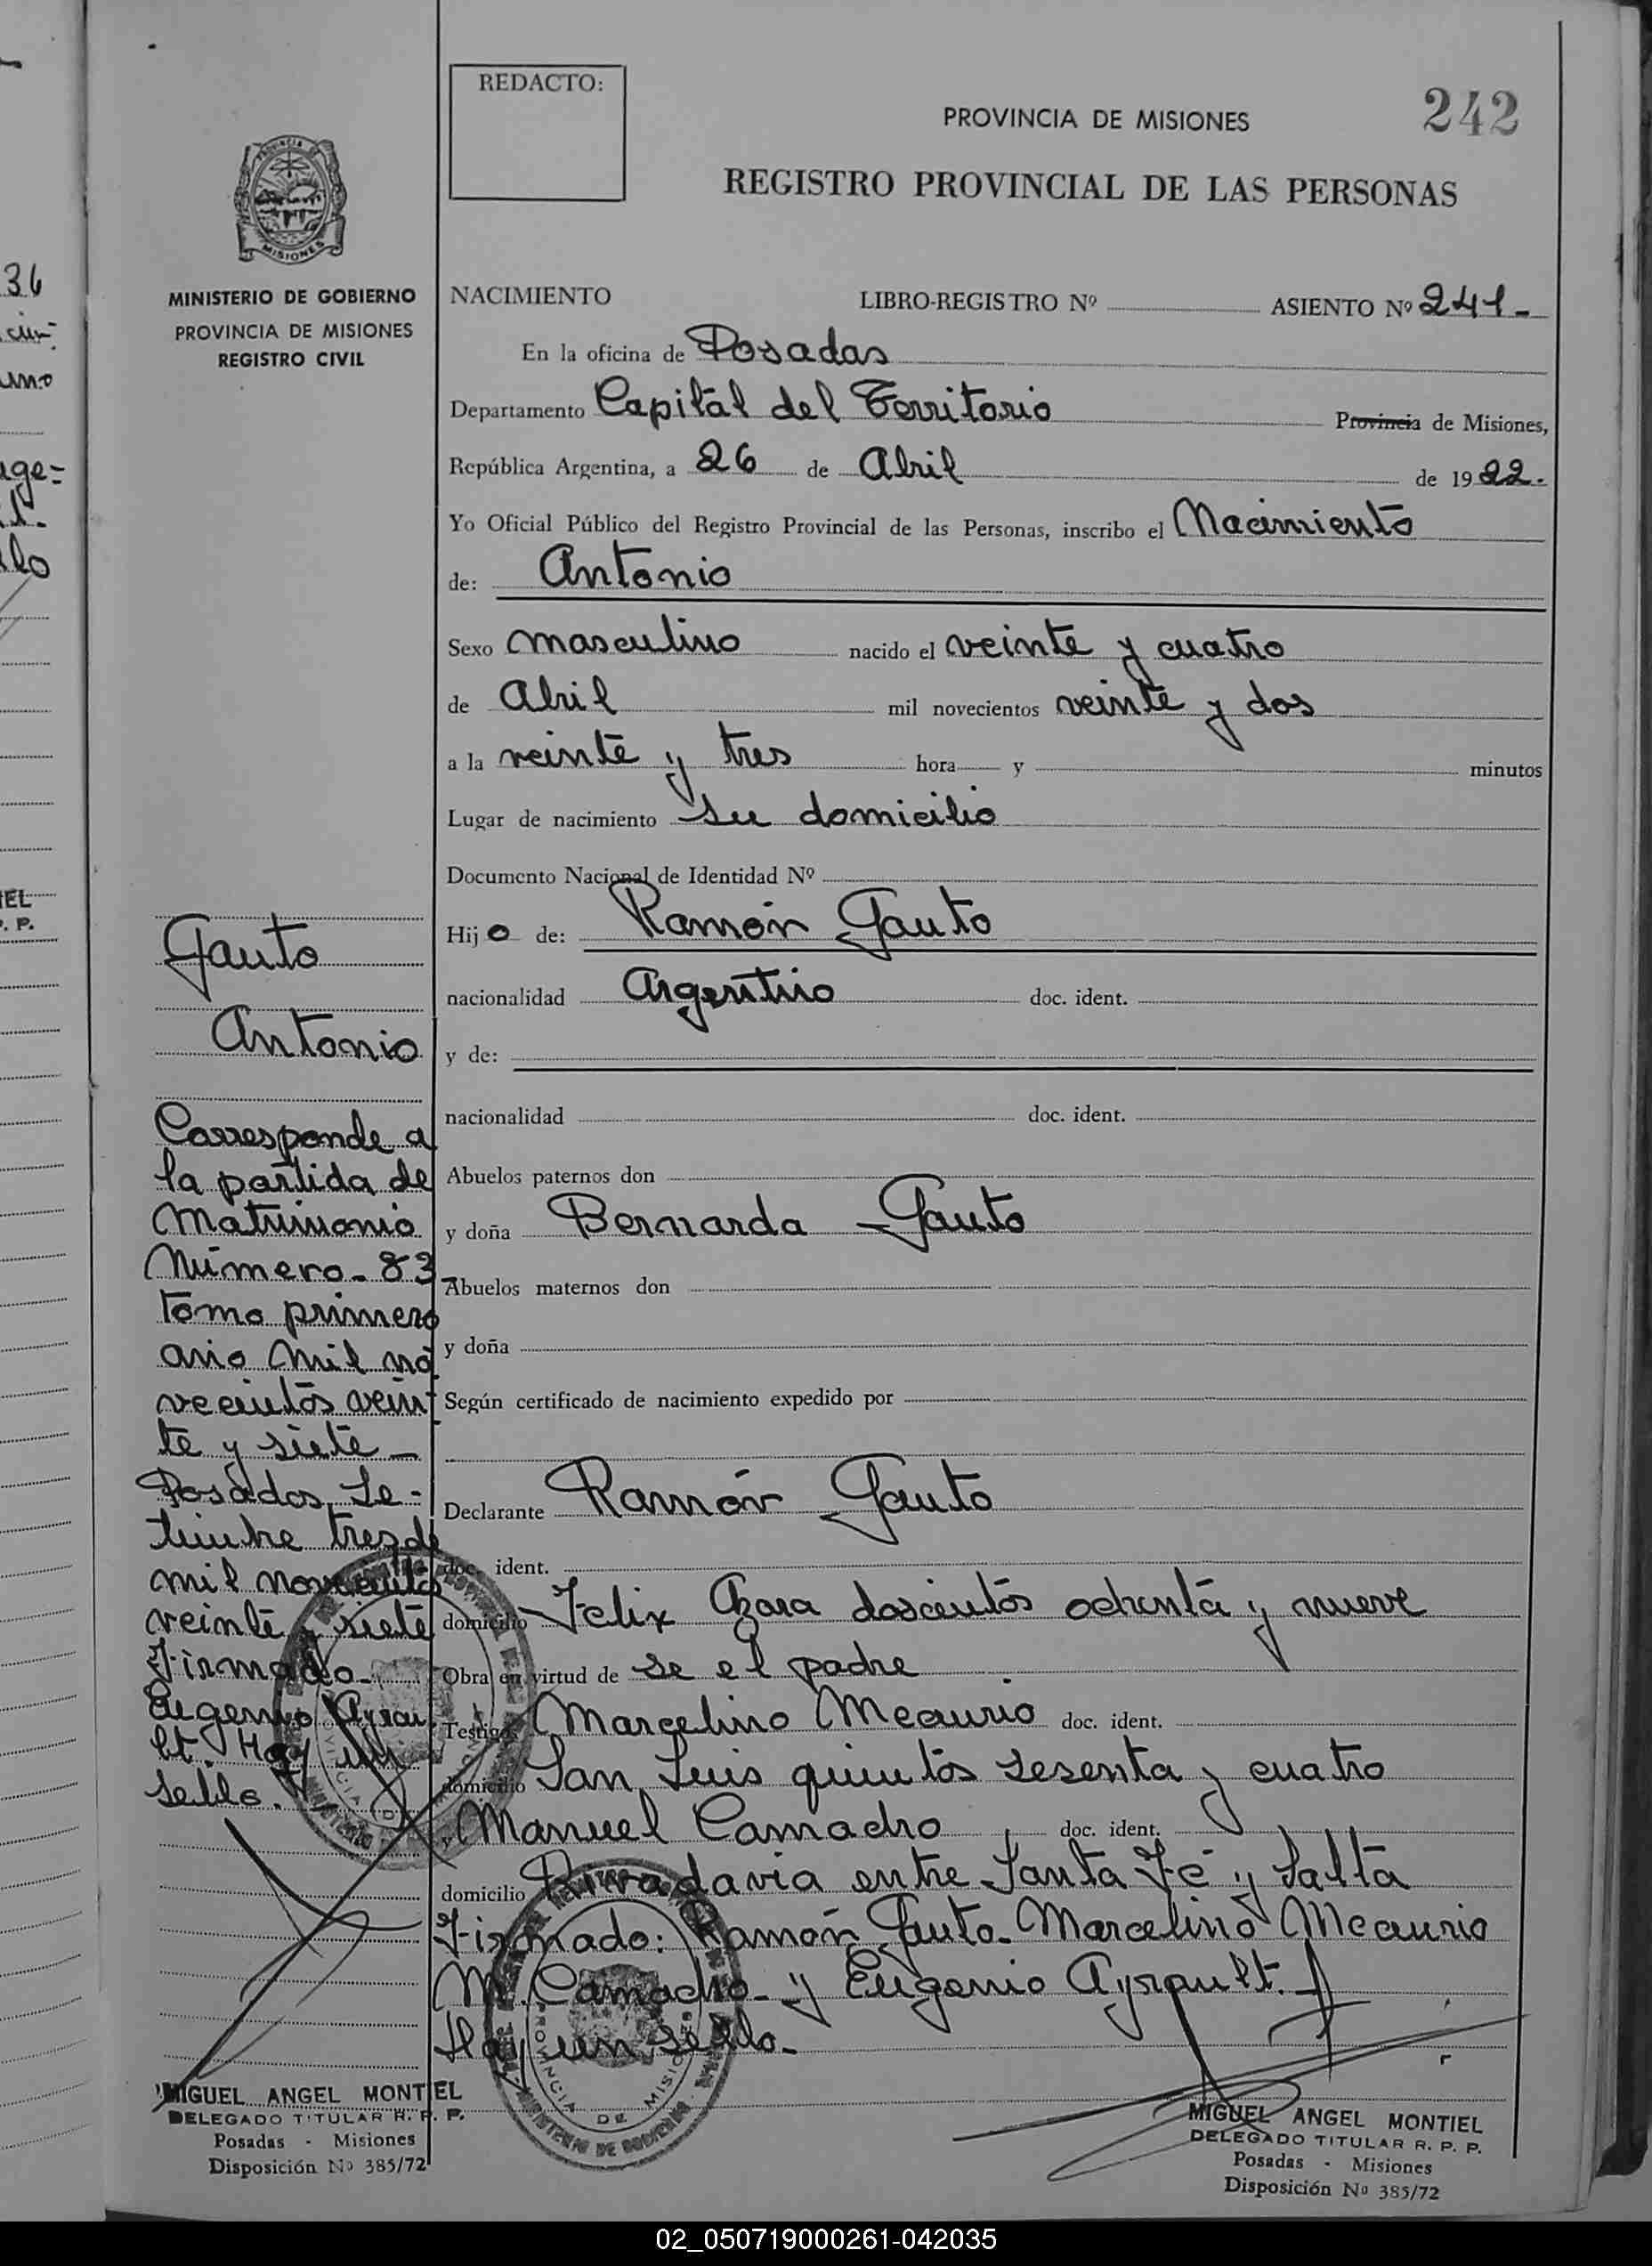 REDACTO:
PROVINCIA DE MISIONES
242
REGISTRO PROVINCIAL DE LAS PERSONAS
MISIONES
MINISTERIO DE GOBIERNO
PROVINCIA DE MISIONES
REGISTRO CIVIL
NACIMIENTO LIBRO-REGISTRO Nº ASIENTO Nº 241-
En la oficina de Posadas
Departamento Capital del Territorio Provincia de Misiones,
República Argentina, a 26 de Abril de 1922.
Yo Oficial Público del Registro Provincial de las Personas, inscribo el Nacimiento
de: Antonio
Sexo masculino nacido el veinte y cuatro
de Abril mil novecientos veinte y dos
a la veinte y tres hora y minutos
Lugar de nacimiento su domicilio
Documento Nacional de Identidad Nº
Hijo de: Ramón Gauto
nacionalidad Argentino doc. ident.
y de:
nacionalidad doc. ident.
Abuelos paternos don
y doña Bernarda Gauto
Abuelos maternos don
y doña
Según certificado de nacimiento expedido por
Declarante Ramón Gauto
doc. ident.
domicilio Felix Azara doscientos ochenta y nueve
Obra en virtud de se el padre
Testigos Marcelino Mecaurio doc. ident.
domicilio San Luis quinientos sesenta y cuatro
y Manuel Camacho doc. ident.
domicilio Rivadavia entre Santa Fé y Salta
Firmado: Ramón Gauto. Marcelino Mecaurio
M. Camacho- y Eugenio Ayrault.
Hay un sello.-
Gauto
Antonio
Corresponde a
la partida de
Matrimonio
Número- 83-
tomo primero
año mil no
vecientos vein
te y siete-
Posadas, Se-
tiembre tres de
mil novecientos
veinte y siete
Firmado-
Eugenio Ayrau
lt. Hay un
sello.
MIGUEL ANGEL MONTIEL
DELEGADO TITULAR R. P. P.
Posadas - Misiones
Disposición Nº 385/72
MIGUEL ANGEL MONTIEL
DELEGADO TITULAR R. P. P.
Posadas - Misiones
Disposición Nº 385/72
02_050719000261-042035